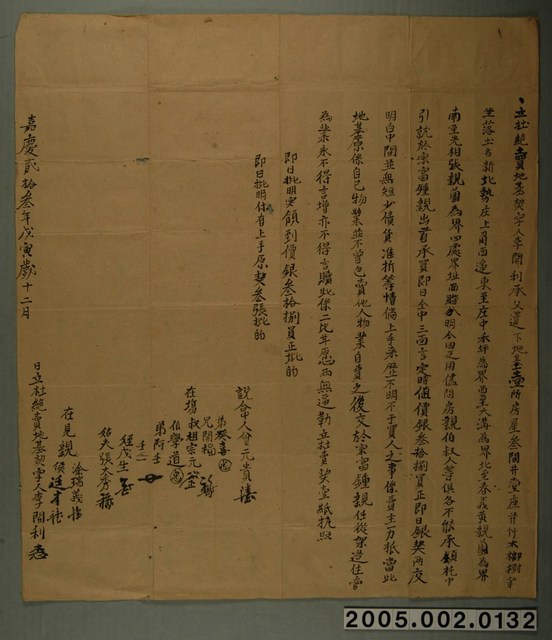 立杜絕賣地基契字人李開利承父遺下地基壹所房屋叁間井壹座并竹木榔樹等
坐落土名新北勢庄上角西邊東至庄中禾坪為界西至大溝為界北至春義黃親園為界
南至光相張親園為界四處界址西踏分明今因乏用儘問房親伯叔人等俱各不能承領托中
引就於宗富鍾親出首承買即日全中三面言定時值價銀叁拾捌員正即日銀契兩交
明白中間並無短少債貨準折等情倘上手來歷不明不干買人之事係賣主一力抵當此
地基原係自己物業並不曾包賣他人物業自賣之後交於宗富鍾親任從架造住管
為業永不得言增亦不得言贖此係二比甘愿兩無逼勒立杜賣契壹紙執照
即日批明實領到價銀叁拾捌員正批的
即日批明付有上手原契叁張批的
說合中人曾元貴
弟癸喜
兄開福
在塲叔祖宗元
伯學道
弟阿壬
姪戊生
代筆張
在見親
涂瑞義
侯廷才
日立杜絕賣地基契字人李開利
嘉慶貳拾叁年戊寅歲十二月
2005.002.0132